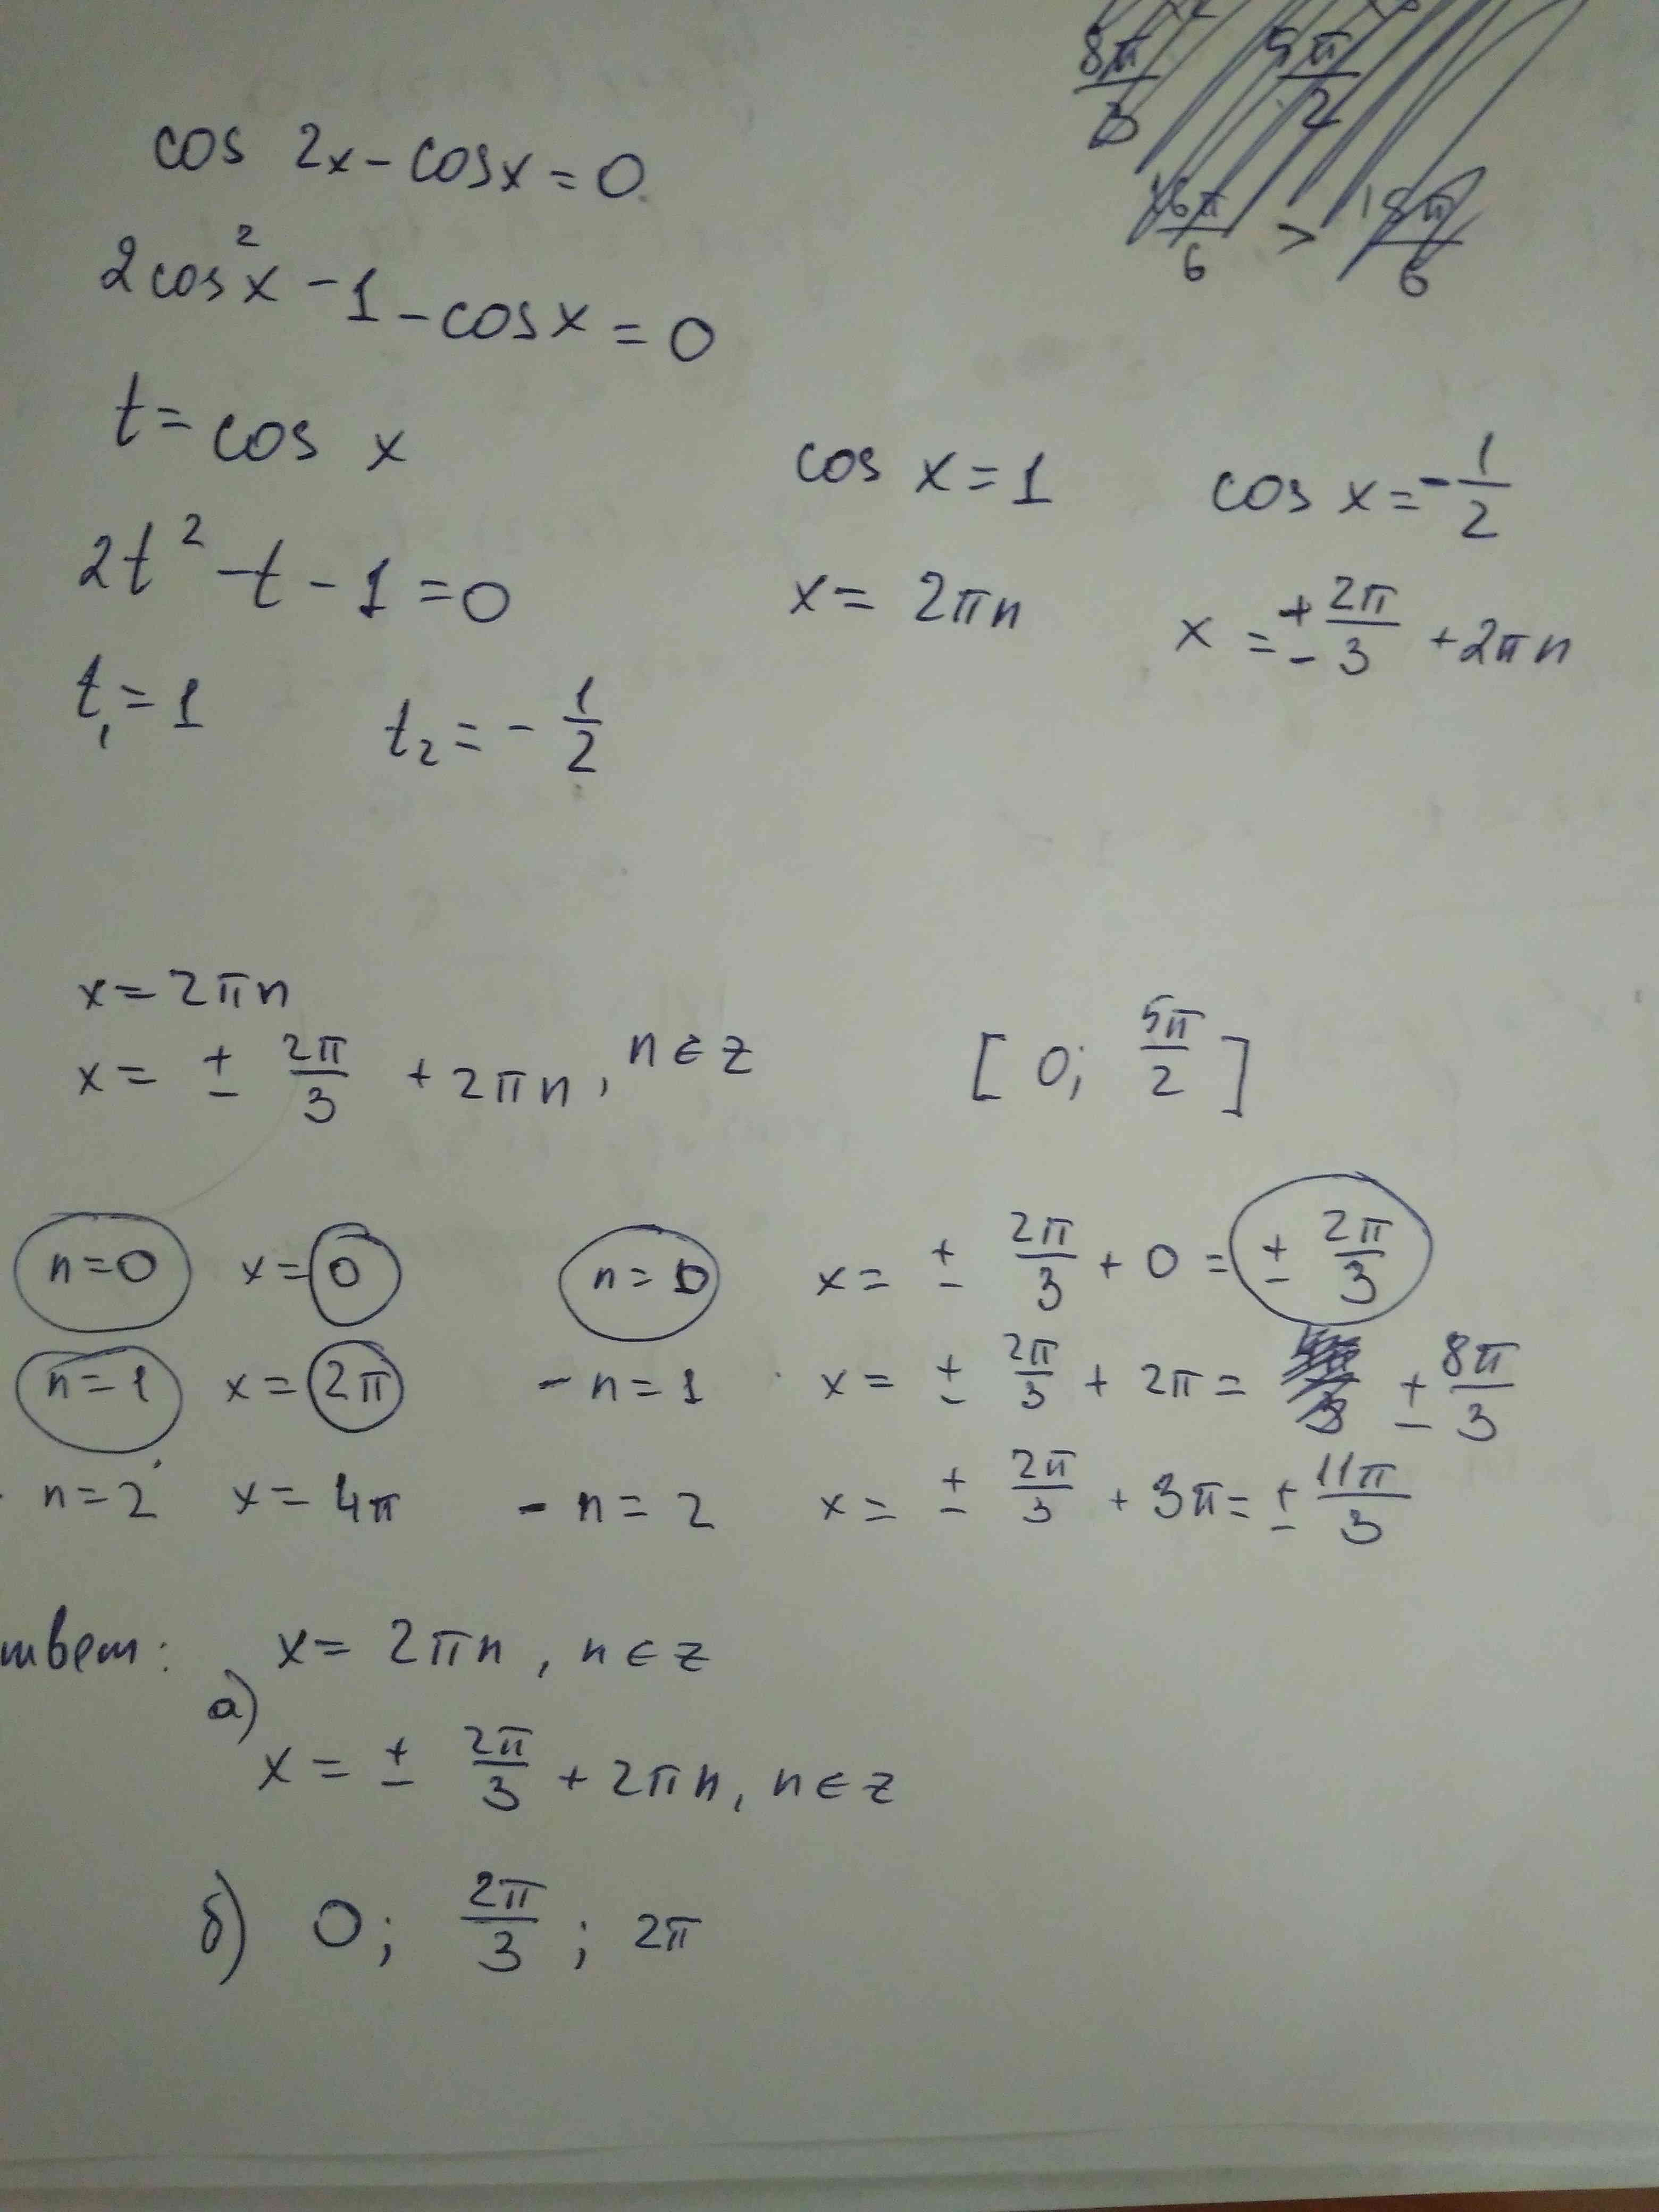 8π/3 5π/2
16π/6 > 15π/6
cos 2x - cosx = 0
2cos²x - 1 - cosx = 0
t = cos x
2t² - t - 1 = 0
t₁ = 1 t₂ = - 1/2
cos x = 1 cos x = - 1/2
x = 2πn x = ± 2π/3 + 2πn
x = 2πn
x = ± 2π/3 + 2πn, n ∈ z [0; 5π/2]
n = 0 x = 0 n = 0 x = ± 2π/3 + 0 = ± 2π/3
n = 1 x = 2π - n = 1 x = ± 2π/3 + 2π = ± 8π/3
n = 2 x = 4π - n = 2 x = ± 2π/3 + 3π = ± 11π/3
твет: x = 2πn, n ∈ z
а)
x = ± 2π/3 + 2πn, n ∈ z
б) 0; 2π/3; 2π